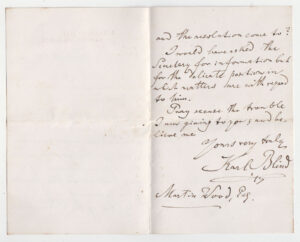 and the resolution come to?
I would have asked the
Secretary for information but
for the delicate position in
which matters are with regard
to him.
Pray excuse the trouble
I am giving to you, and be-
lieve me
Yours very truly
Karl Blind
Martin Wood, Esq.